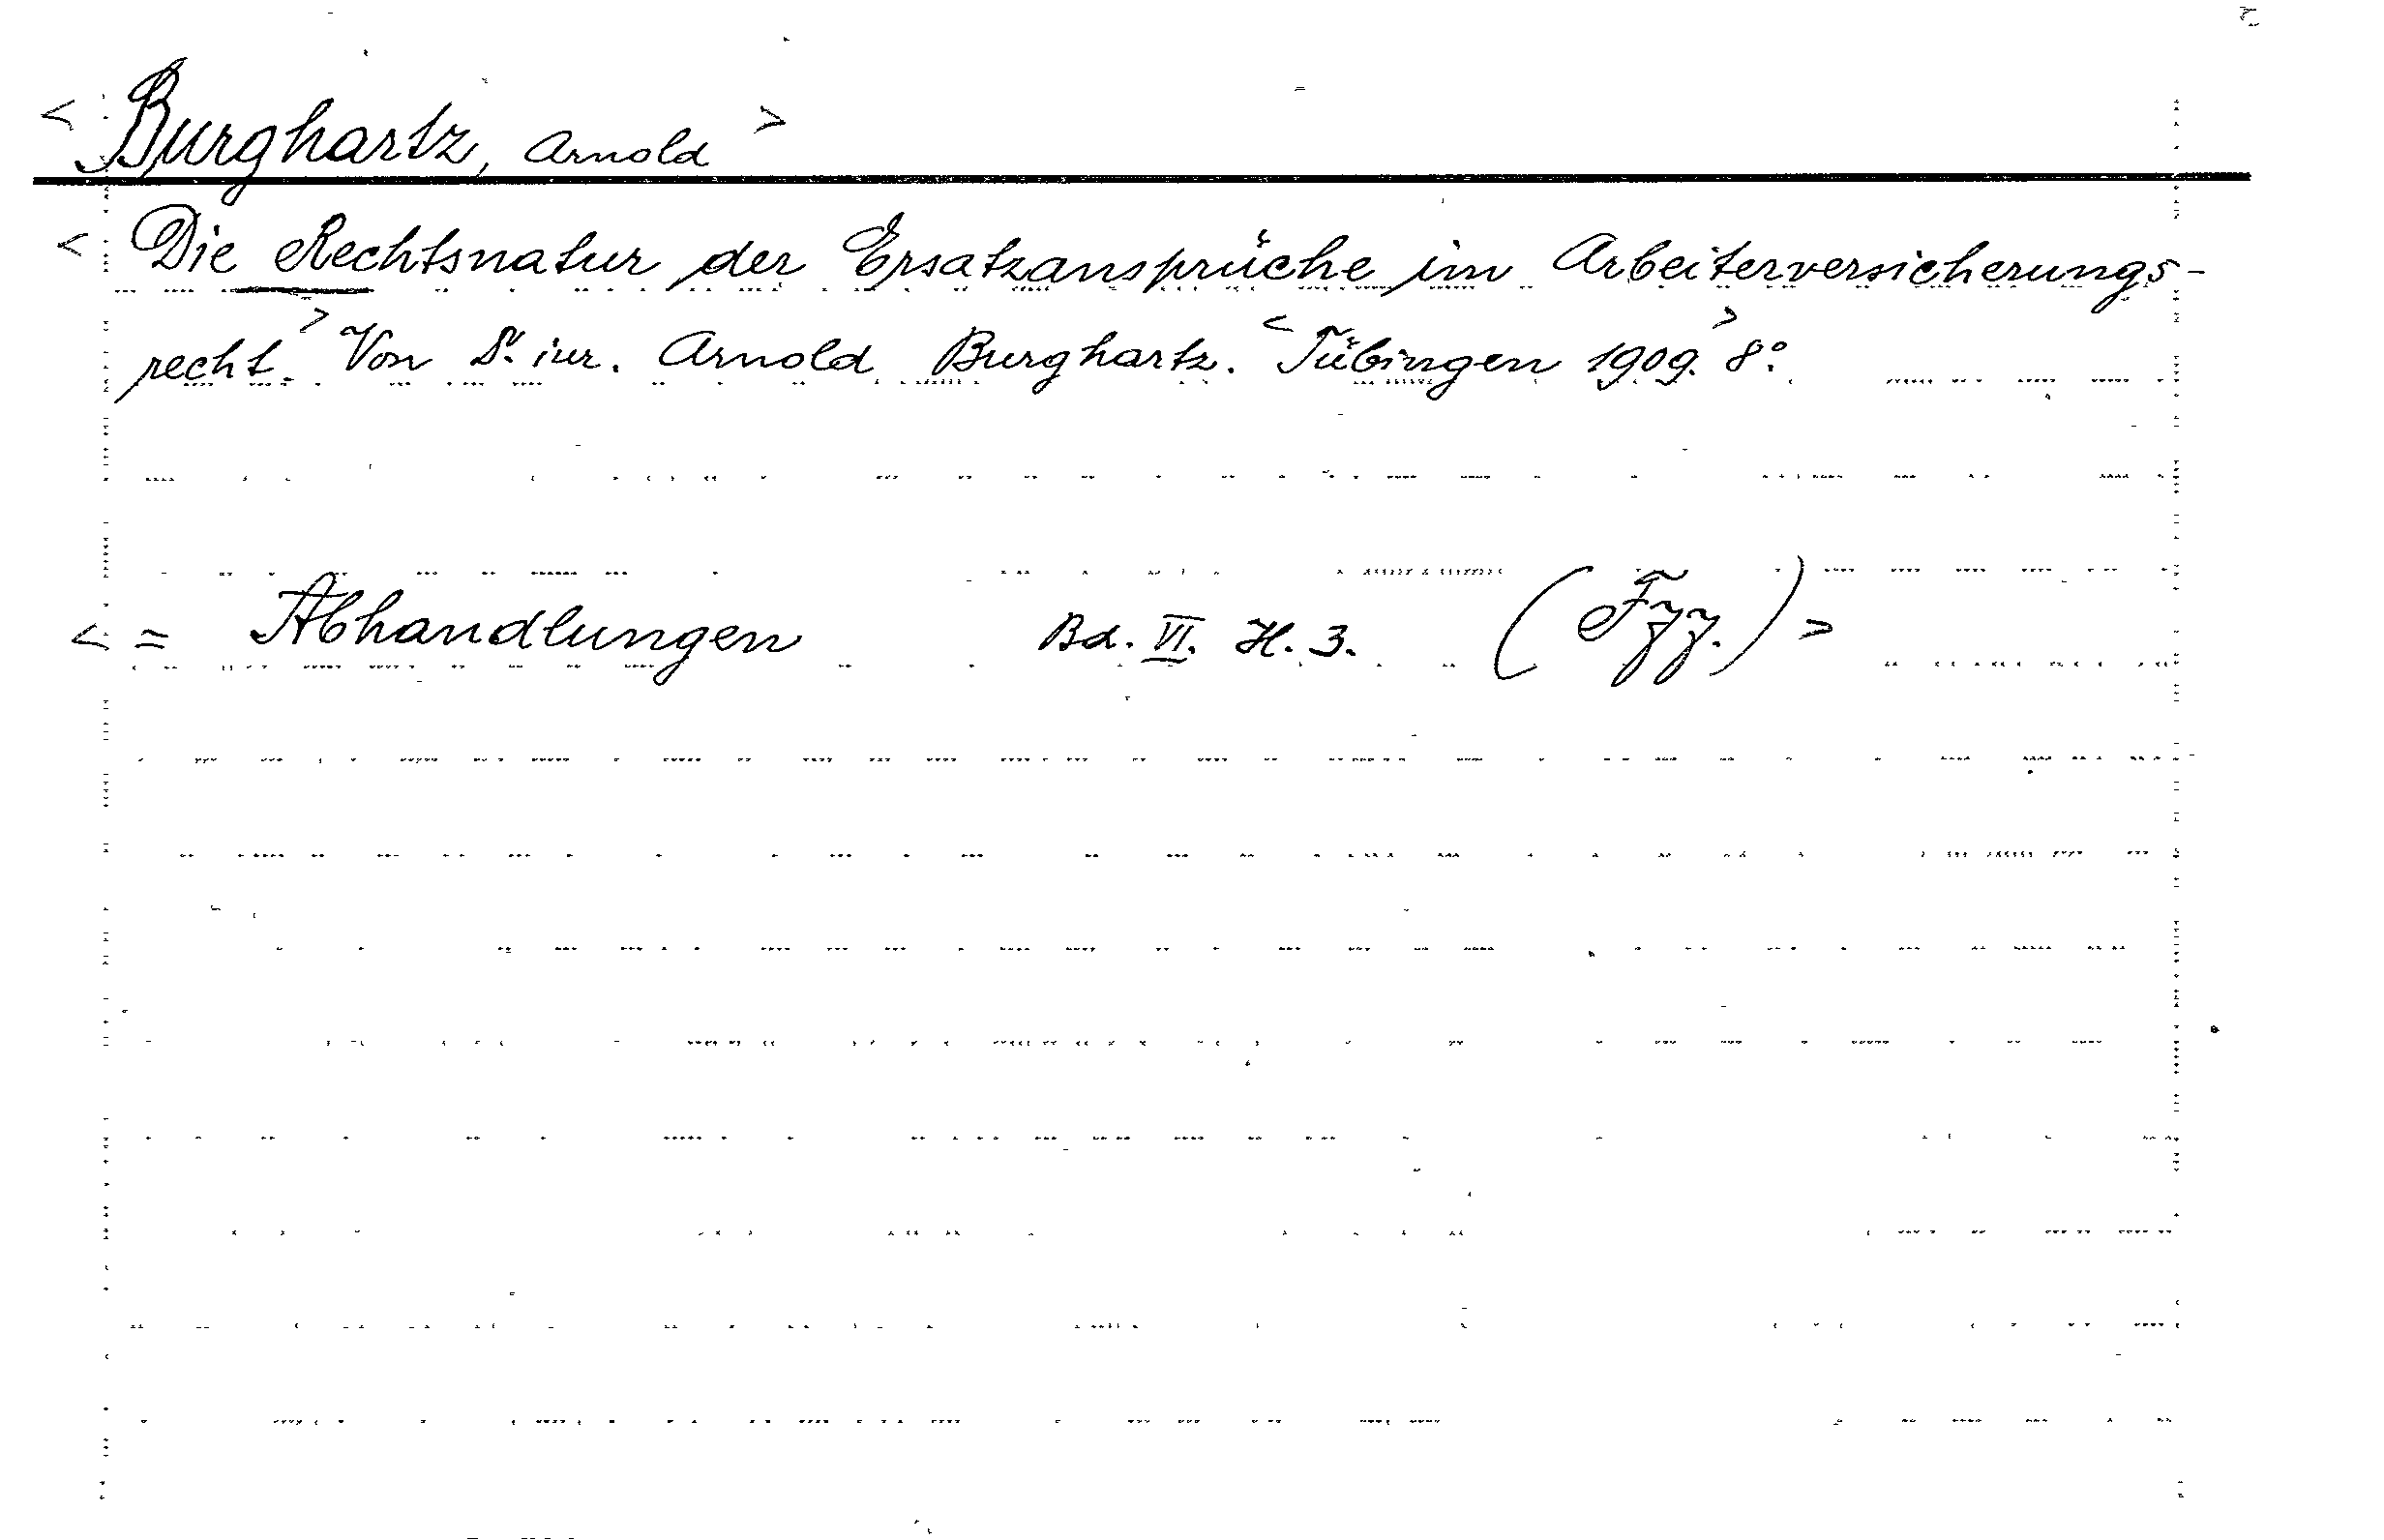 < Burghartz, Arnold >
< Die Rechtsnatur der Ersatzansprüche im Arbeiterversicherungs-
recht. > Von Dr. iur. Arnold Burghartz. < Tübingen 1909. > 8°.
< = Abhandlungen Bd. VI. H. 3. (Fzz.) >